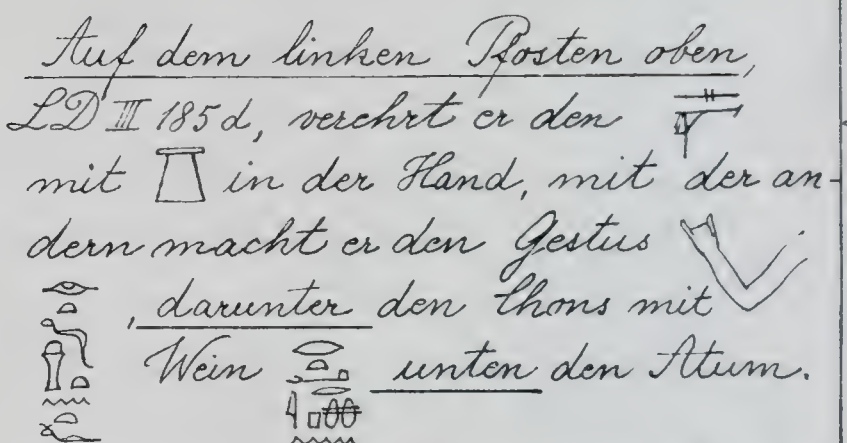 Auf dem linken Pfosten oben,
LD III 185d, verehrt er den
mit in der Hand, mit der an-
dern macht er den Gestus
, darunter den Chons mit
Wein unten den Atum.